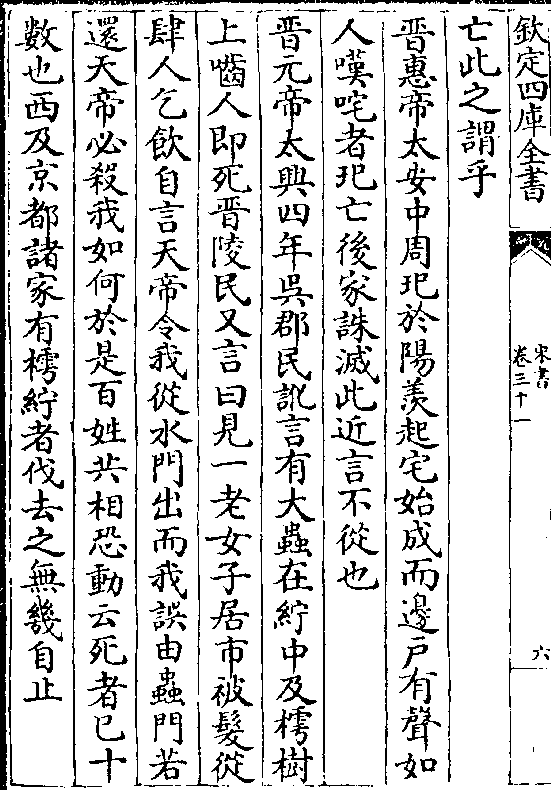 欽定四庫全書
宋書
卷三十一
六
亡此之謂乎
晉惠帝太安中周玘於陽羨起宅始成而邊戶有聲如
人嘆咤者玘亡後家誅滅此近言不從也
晉元帝太興四年吳郡民訛言有大蟲在紵中及樗樹
上齧人即死晉陵民又言曰見一老女子居市被髮從
肆人乞飲自言天帝令我從水門出而我誤由蟲門若
還天帝必殺我如何於是百姓共相恐動云死者已十
數也西及京都諸家有樗紵者伐去之無幾自止